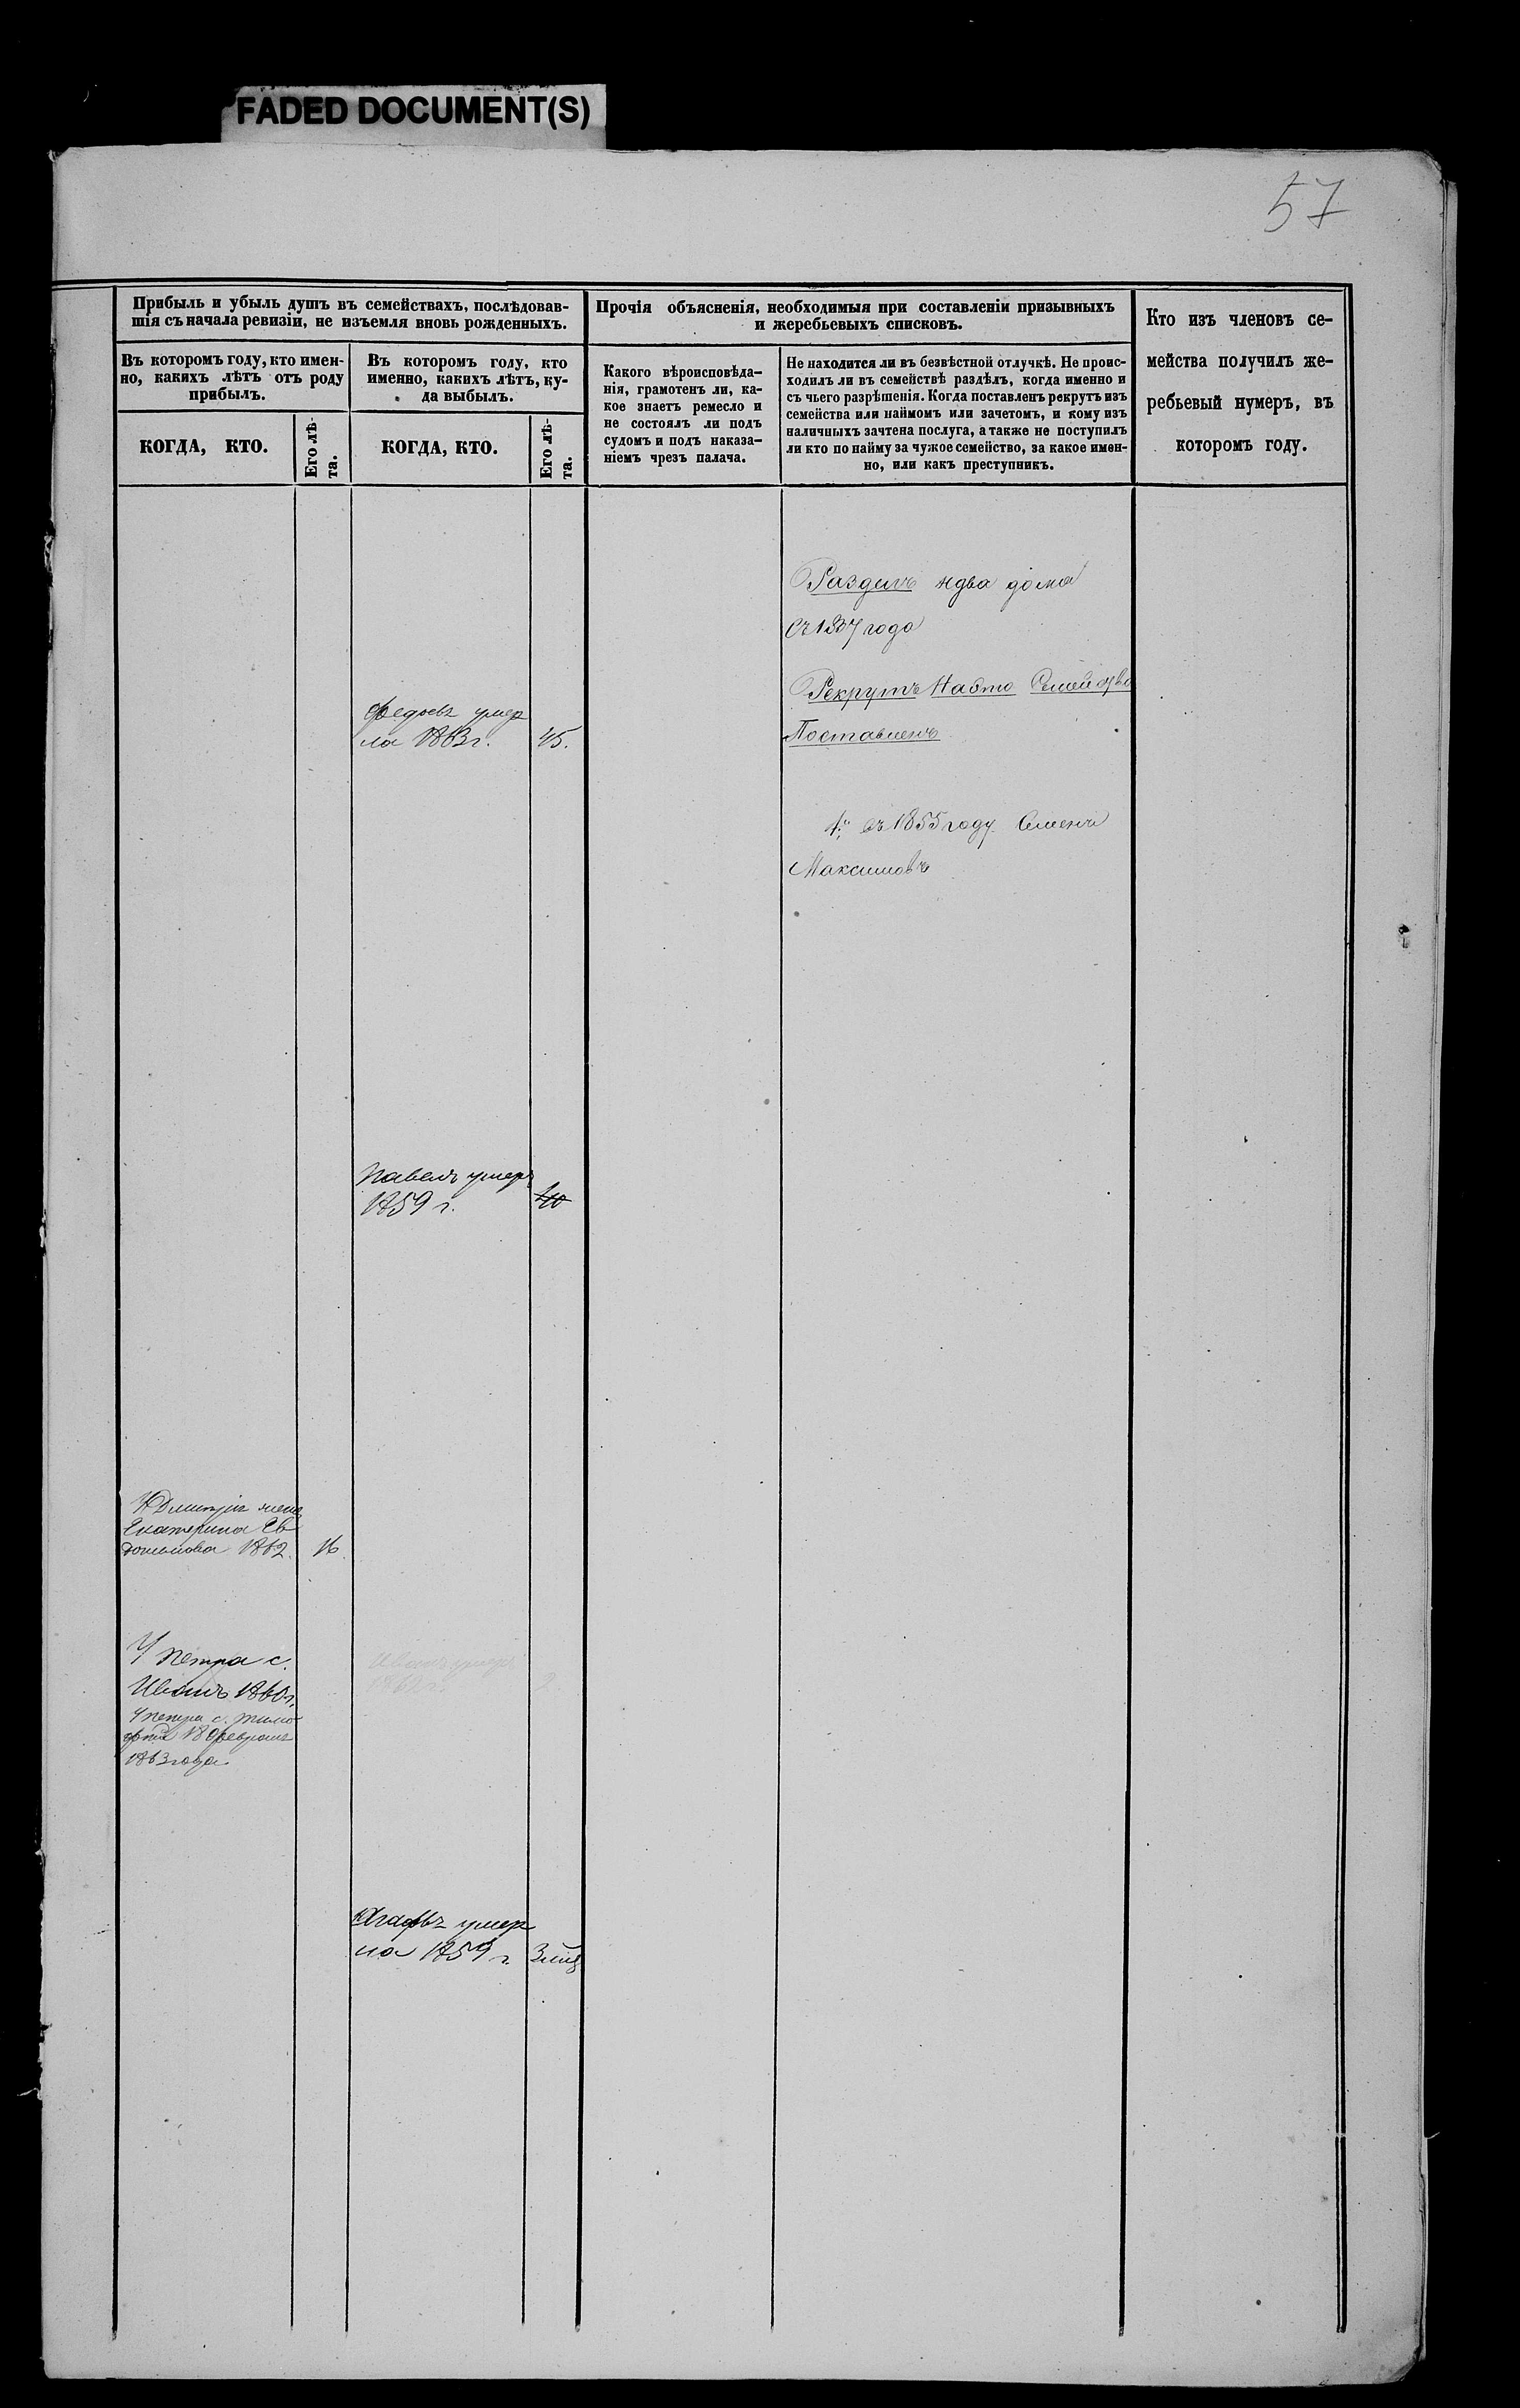 FADED DOCUMENT(S)
57
Прибыль и убыль душъ въ семействахъ, послѣдовав-
шія съ начала ревизіи, не изъемля вновь рожденныхъ.
Въ которомъ году, кто имен-
но, какихъ лѣтъ отъ роду
прибылъ.
КОГДА, КТО.
Его лѣ-
та.
Въ которомъ году, кто
именно, какихъ лѣтъ, ку-
да выбылъ.
КОГДА, КТО.
Его лѣ-
та.
Прочія объясненія, необходимыя при составленіи призывныхъ
и жеребьевыхъ списковъ.
Какого вѣроисповѣда-
нія, грамотенъ ли, ка-
кое знаетъ ремесло и
не состоялъ ли подъ
судомъ и подъ наказа-
ніемъ чрезъ палача.
Не находится ли въ безвѣстной отлучкѣ. Не проис-
ходилъ ли въ семействѣ раздѣлъ, когда именно и
съ чьего разрѣшенія. Когда поставленъ рекрутъ изъ
семейства или наймомъ или зачетомъ, и кому изъ
наличныхъ зачтена послуга, а также не поступилъ
ли кто по найму за чужое семейство, за какое имен-
но, или какъ преступникъ.
Кто изъ членовъ се-
мейства получилъ же-
ребьевый нумеръ, въ
которомъ году.
Разделъ два дома
года
Рекрутъ
Поставленъ
съ 1855 году Семенъ
Максимовъ
умер
ла 1863 г. 45.
Павелъ умеръ
1859 г. 40
Дмитрія жена
Екатерина Ев
1862. 16
У Петра с.
Иванъ 1860 г.
У Петра с. Тимо
фей 18 февраля
1863 года
Иванъ умеръ
2
умер
ла 1859 г.